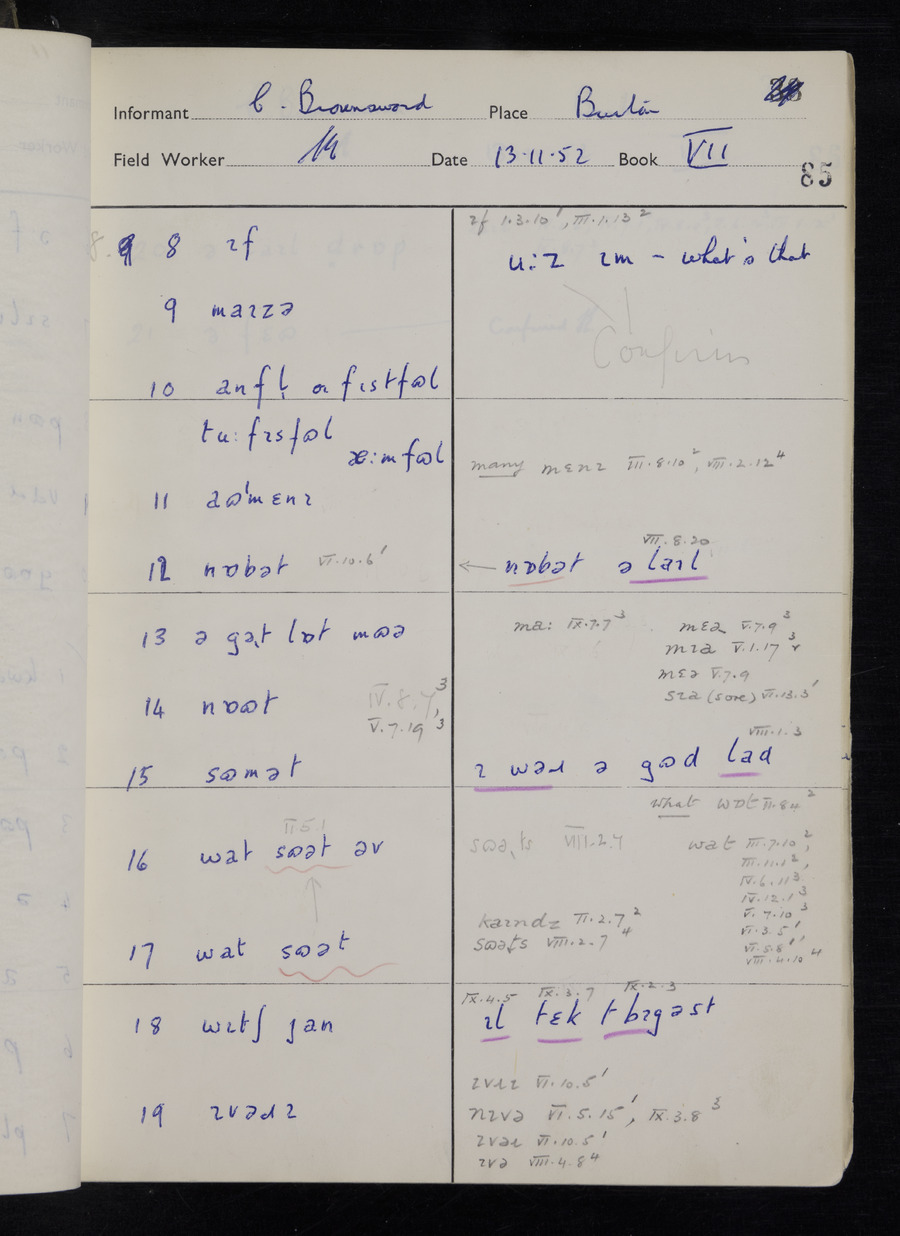 Informant C. Brownsword Place Burton
Field Worker Date 13.11.52 Book VII
85
8 ɪf
ɪf 1.3.10¹, III.1.13²
u:z ɪm – what's that
9 maɪzə
Confirms
10 anfl̩ or fɪstfʊl
tu: fɪsfʊl
æ:mfʊl
many mɛnɪ VII.8.10², VIII.2.12⁴
11 aʊ'mɛnɪ
VII.8.20
12 nɒbət VI.10.6¹
← nɒbət ə laɪl
13 ə gə̣t lɒt mʊə
ma: IX.7.7³ mɛə V.7.9³
mɪə V.1.17³
mɛə V.7.9
sɪə (sore) VI.13.3¹
14 nɒʊt IV.8.7³,
V.7.19³
VIII.1.3
15 sʊmət
ɪ wəɹ ə gʊd lad
what wɒt II.84²
II.5.1
16 wat sʊət əv
sʊə̣ts VIII.2.7 wat III.7.10²,
III.11.1²,
IV.6.11³
IV.12.1³
V.7.10³
VI.3.5¹
VI.5.8¹
VIII.4.10⁴
kaɪndz VI.2.7²
sʊəts VIII.2.7⁴
17 wat sʊət
IX.4.5 IX.3.7 IX.2.3
18 wɪtʃ jan
ɪl tɛk t bɪgəst
ɪvɹɪ VI.10.5¹
19 ɪvəɹɪ
nɪvə VI.5.15¹, IX.3.8³
ɪvəɹ VI.10.5¹
ɪvə VIII.4.8⁴